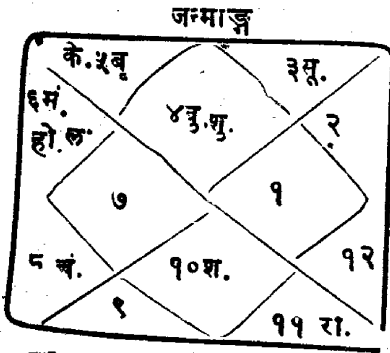 जन्माङ्ग
के. ५ बृ
३ सू.
६ मं.
हो. ल.
४ बु. शु.
२
७
१
८ चं.
१० श.
१२
९
११ रा.